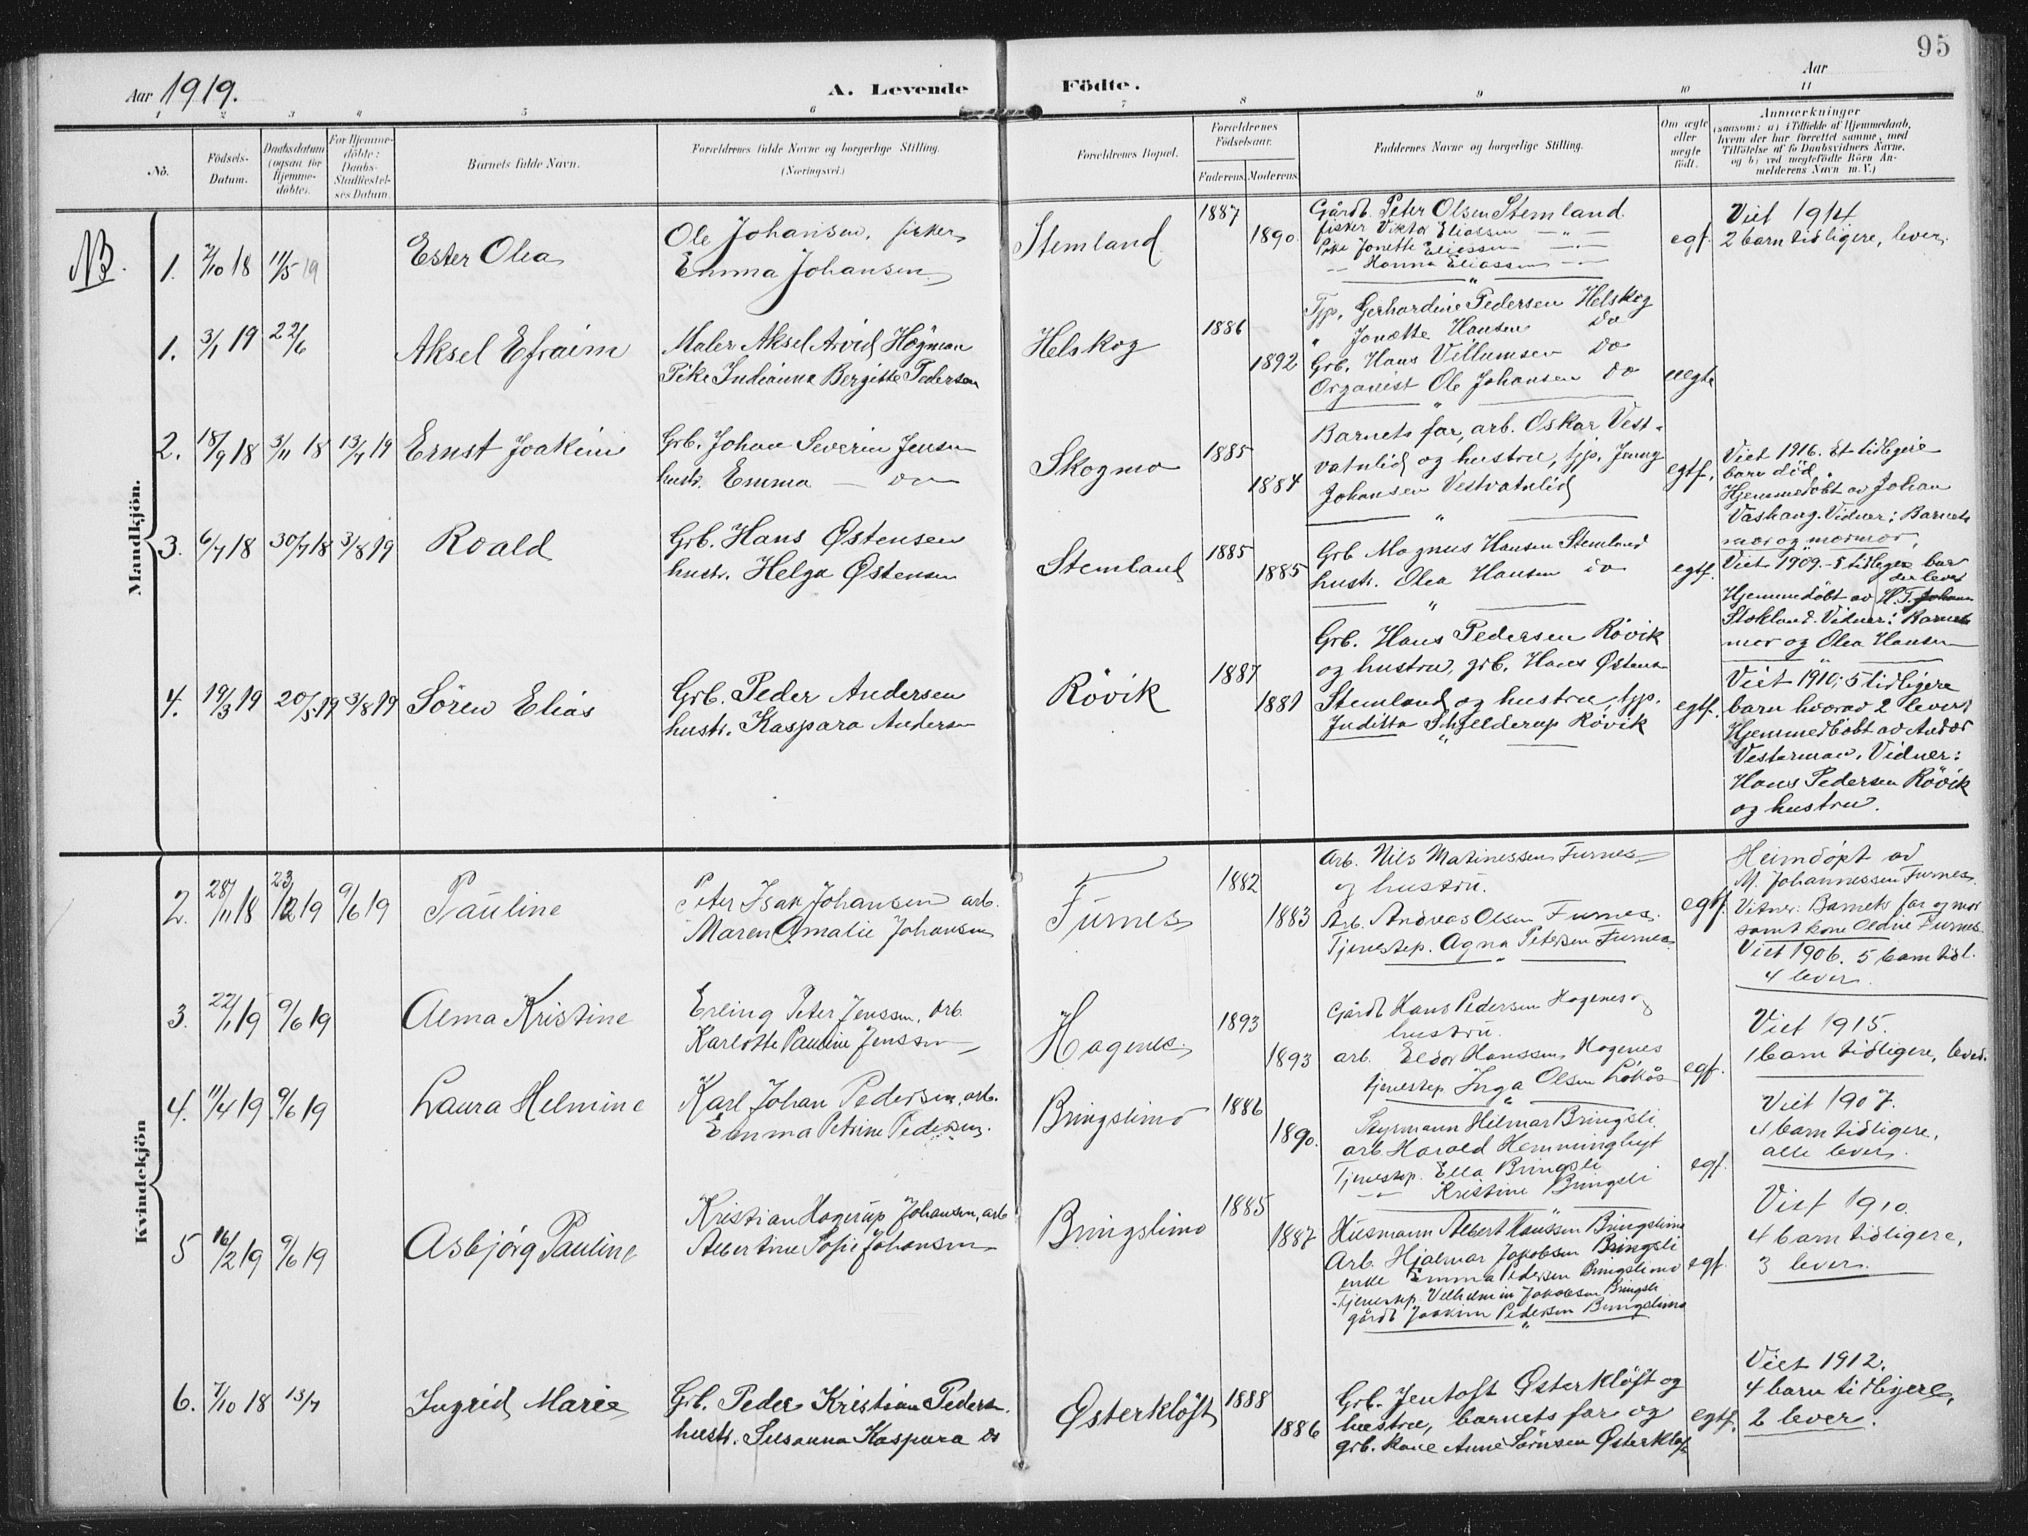 95
Aar 1919.
A. Levende Födte.
Aar
1 2 3 4 5 6 7 8 9 10 11
No.
Födsels-
Datum.
Daabsdatum
(ogsaa for
Hjemme-
döbte).
For Hjemme-
döbte:
Daabs-
Stadfæstel-
ses Datum.
Barnets fulde Navn.
Forældrenes fulde Navne og borgerlige Stilling.
(Næringsvei.)
Forældrenes Bopæl.
Forældrenes
Födselsaar.
Faderens. Moderens.
Faddernes Navne og borgerlige Stilling.
Om ægte
eller
uægte
födt.
Anmærkninger
(saasom: a) i Tilfælde af Hjemmedaab,
hvem der har forrettet samme, med
Tilföielse af to Daabsvidners Navne,
og b) ved uegtefödte Börn An-
melderens Navn m. V.)
Mandkjön.
NB. 1. 2/10 18 11/5 19 Ester Olea
Ole Johansen, fisker
Emma Johansen
Stemland 1887 1890
Gårdb. Peter Olsen Stemland
fisker Viktor Eliassen — " —
Pike Jonette Eliassen — " —
— " — Hanna Eliassen — " —
egf.
Viet 1914
2 barn tidligere, lever.
1. 3/1 19 22/6 Aksel Efraim
Maler Aksel Arvid Högman
Pike Indianna Bergitte Pedersen
Helskog 1886 1892
Tjp. Gerhardine Pedersen Helskog
" Jonette Hansen do
Grb. Hans Villumsen do
Organist Ole Johansen do
uegte
2. 18/9 18 3/11 18 13/7 19 Ernst Joakim
Grb. Johan Severin Jensen
hustr. Emma — do
Skogmo 1885 1884
Barnets far, arb. Oskar Vest-
vatnlid og hustru, tjp. Jenny
Johansen Vestvatnlid
egtf.
Viet 1916. Et tidligere
barn död.
Hjemmedöbt av Johan
Vashaug. Vidner: Barnets
mor og mormor.
3. 6/7 18 30/7 18 3/8 19 Roald
Grb. Hans Østensen
hustr. Helga Østensen
Stemland 1885 1885
Grb Magnus Hansen Stemland
hustr. Olea Hansen do
egtf.
Viet 1909. - 5 tidligere bar
der lever
Hjemmedöbt av H. T. Johan
Stokland. Vidner: Barnets
mor og Olea Hansen
4. 19/3 19 20/5 19 3/8 19 Sören Elias
Grb. Peder Andersen
hustr. Kaspara Andersen
Rövik 1887 1881
Grb. Hans Pedersen Rövik
og hustru, grb. Hans Østens
Stemland og hustru, tjp.
Juditta Schjelderup Rövik
egtf.
Viet 1910; 5 tidligere
barn hvorav 2 lever.
Hjemmedöbt av Andor
Vesterman. Vidner:
Hans Pedersen Rövik
og hustru.
Kvindekjön
2. 28/11 18 23/12 19 9/6 19 Pauline
Peter Isak Johansen arb.
Maren Amalie Johansen
Furnes 1882 1883
Arb. Nils Matinessen Furnes
og hustru.
Arb. Andreas Olsen Furnes.
Tjenestep. Agna Petersen Furnes
egtf.
Heimdöpt av
M. Johannessen Furnes.
Vitner: Barnets far og mor
samt kone Oldine Furnes.
Viet 1906. 5 barn tidl.
4 lever.
3. 22/1 19 9/6 19 Alma Kristine
Erling Peter Jenssen, arb.
Karlotte Pauline Jenssen
Hagenes 1893 1893
Gårdb Hans Pedersen Hagenes og
hustru.
arb. Eldor Hanssen, Hagenes
tjenestep Inga Olsen Lökås
egf.
Viet 1915.
1 barn tidligere, lever.
4. 11/4 19 9/6 19 Laura Helmine
Karl Johan Pedersen, arb.
Emma Petrine Pedersen.
Bringslimo 1886 1890.
Styrmann Hilmar Bringsli.
arb. Harald Hemminghyt
Tjenestep. Ella Bringsli
— " — Kristine Bringsli
egf.
Viet 1907.
4 barn tidligere,
alle lever.
5 16/2 19 9/6 19 Asbjörg Pauline
Kristian Hagerup Johansen, arb
Albertine Sofie Johansen
Bringslimo 1885 1887
Husmann Albert Hanssen Bringslimo
Arb. Hjalmar Jakobsen Bringsli
enke Emma Pedersen Bringslimo
Tjenestep. Vilhelmin Jakobsen Bringsli
gårdb Joakim Pedersen Bringslimo
egf.
Viet 1910.
4 barn tidligere,
3 lever.
6. 7/10 18 13/7 Ingrid Marie
Grb. Peder Kristian Peders.
hustr. Susanna Kaspara do
Østerklöft 1888 1886
Grb. Jentoft Østerklöft og
hustru, barnets far og
grb. kone Anne Sörnsen Østerklöft
egtf.
Viet 1912.
4 barn tidligere,
2 lever.